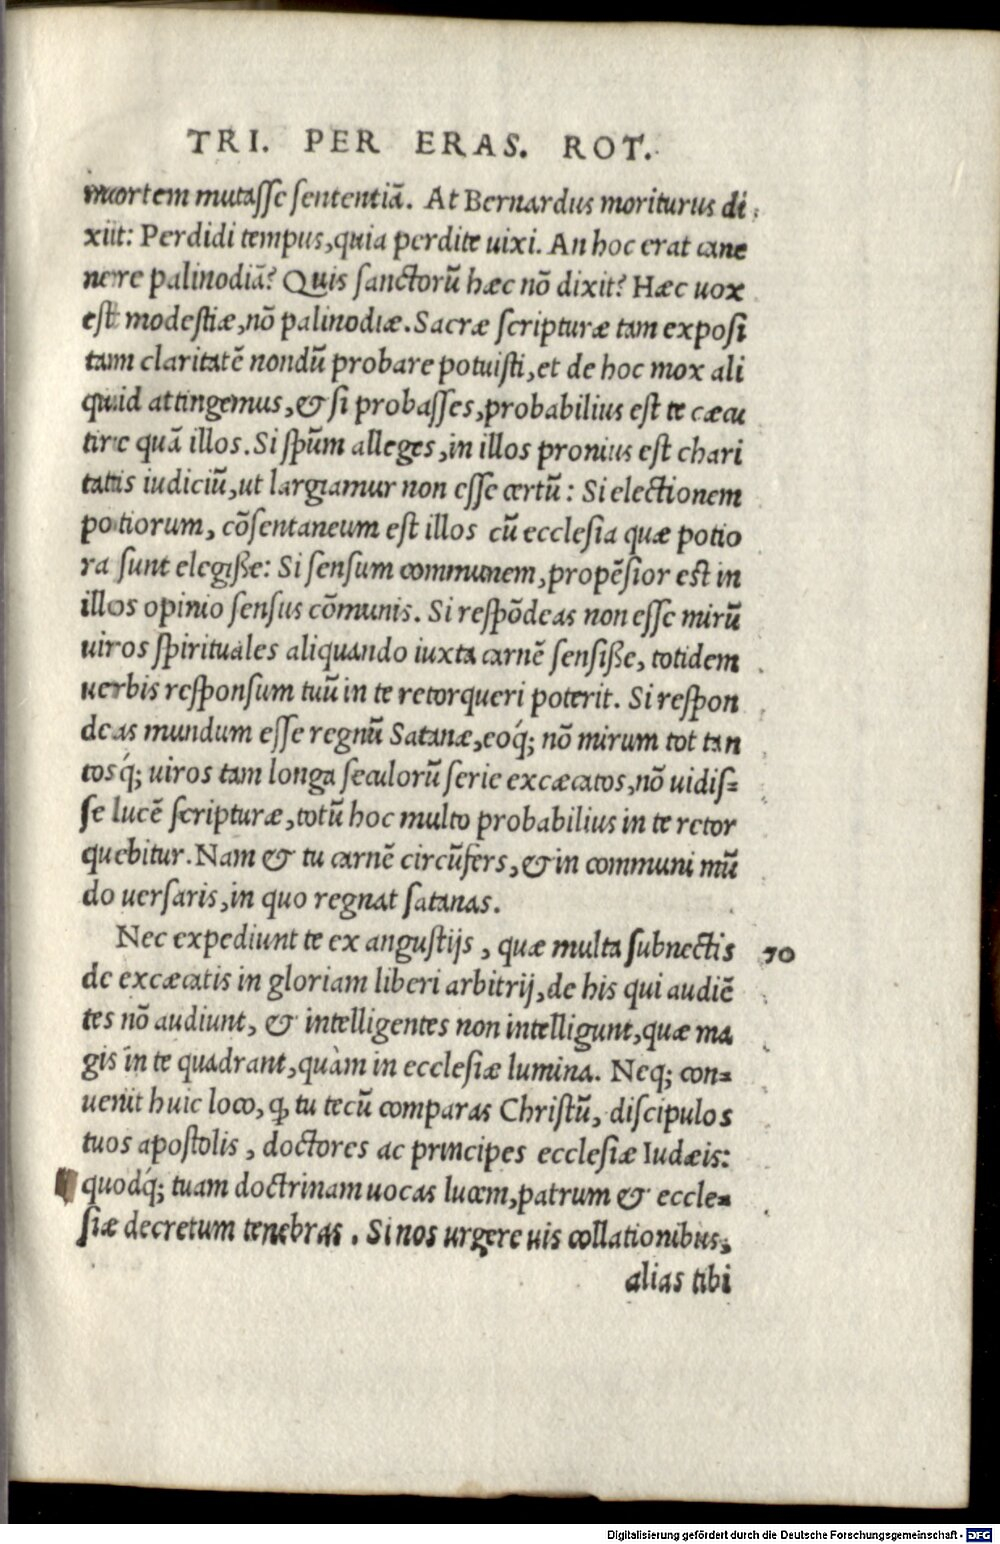 TRI. PER ERAS. ROT.
mortem mutasſe ſententiā. At Bernardus moriturus di
xiit: Perdidi tempus, quia perdite uixi. An hoc erat cane
nere palinodiā? Quis ſanctorū hæc nō dixit? Hæc uox
eſt modeſtiæ, nō palinodiæ. Sacræ ſcripturæ tam expoſi
tam claritatē nondū probare potuiſti, et de hoc mox ali
quid attingemus, & ſi probaſſes, probabilius eſt te cæcu
tire quā illos. Si ſpūm alleges, in illos pronius eſt chari
tatis iudiciū, ut largiamur non eſſe certū: Si electionem
potiorum, cōſentaneum eſt illos cū eccleſia quæ potio
ra ſunt elegiſße: Si ſenſum communem, propēſior eſt in
illos opinio ſenſus cōmunis. Si reſpōdeas non eſſe mirū
uiros ſpirituales aliquando iuxta carnē ſenſiße, totidem
uerbis reſponſum tuū in te retorqueri poterit. Si reſpon
deas mundum eſſe regnū Satanæ, eoq́; nō mirum tot tan
tosq́; uiros tam longa ſeculorū ſerie excæcatos, nō uidiſ=
ſe lucē ſcripturæ, totū hoc multo probabilius in te retor
quebitur. Nam & tu carnē circūfers, & in communi mū
do uerſaris, in quo regnat ſatanas.
Nec expediunt te ex anguſtijs, quæ multa ſubnectis 70
de excæcatis in gloriam liberi arbitrij, de his qui audiē
tes nō audiunt, & intelligentes non intelligunt, quæ ma
gis in te quadrant, quàm in eccleſiæ lumina. Neq; con=
uenit huic loco, q̨ tu tecū comparas Chriſtū, diſcipulos
tuos apoſtolis, doctores ac principes eccleſiæ Iudæis:
quodq́; tuam doctrinam uocas lucem, patrum & eccle=
ſiæ decretum tenebras. Si nos urgere uis collationibus,
alias tibi
Digitalisierung gefördert durch die Deutsche Forschungsgemeinschaft - DFG